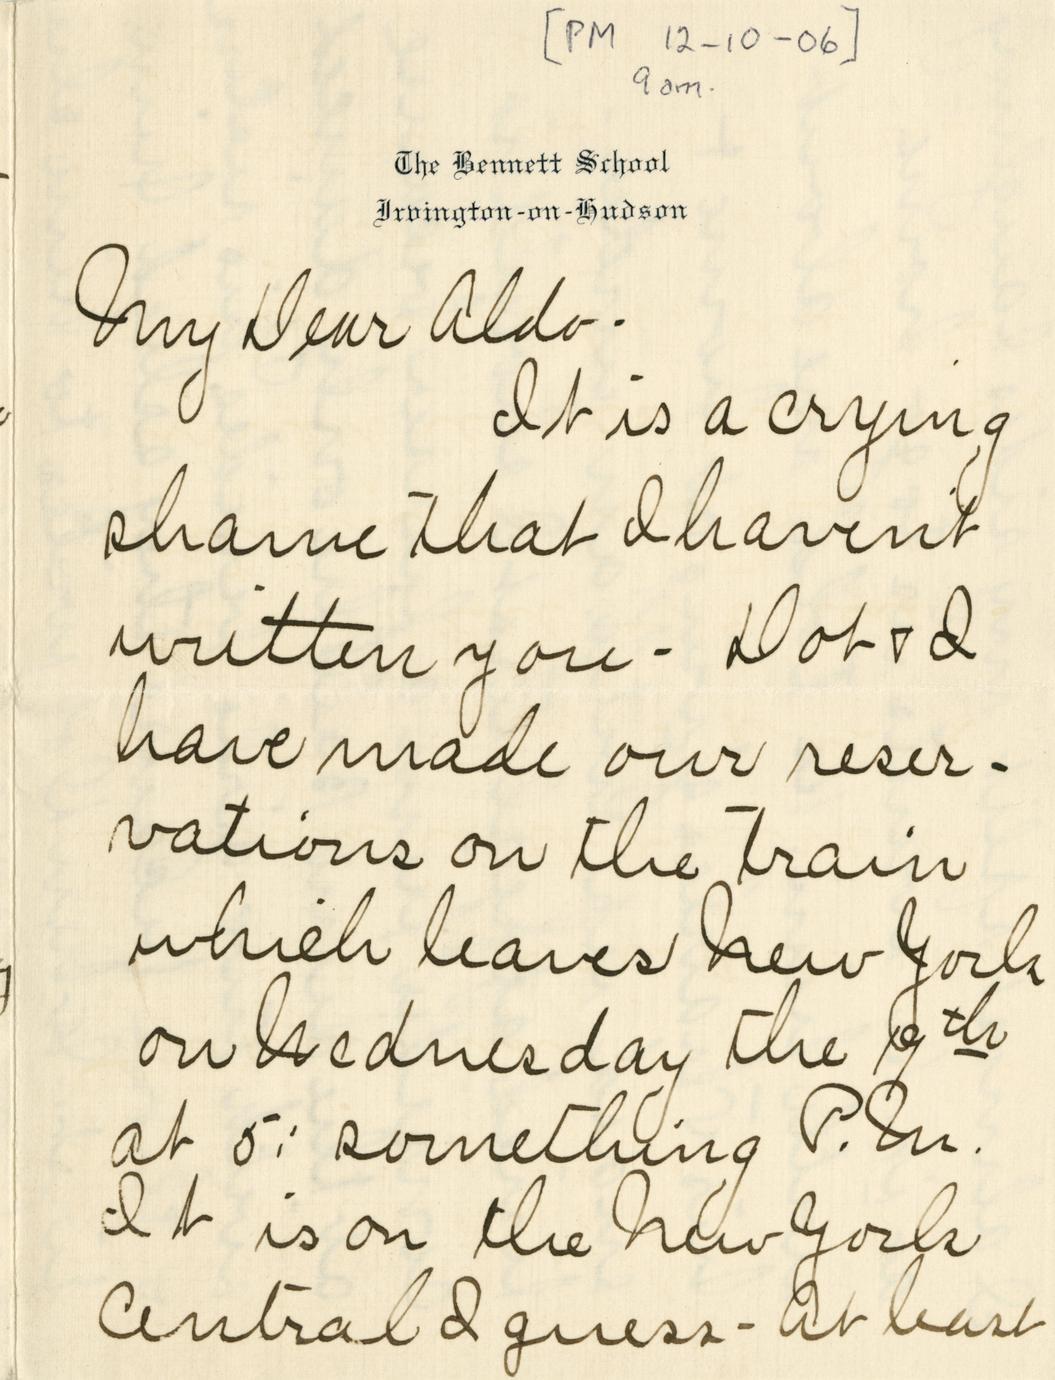 [PM 12-10-06]
9 am.
The Bennett School
Irvington-on-Hudson
My Dear Aldo-
It is a crying
shame that I havent
written you - Dot & I
have made our reser-
vations on the train
which leaves New York
on Wednesday the 19th
at 5: something P.M.
It is on the New York
Central I guess - At least